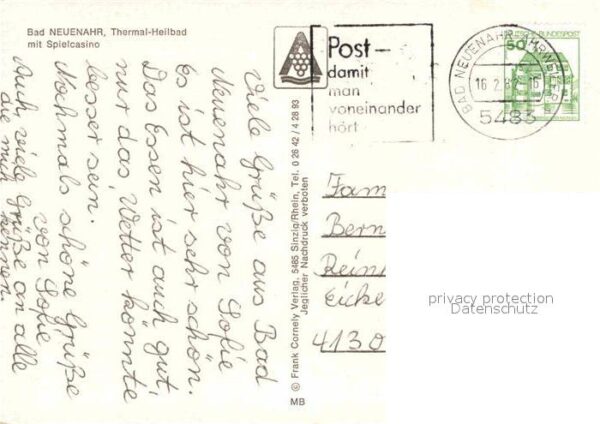 Bad NEUENAHR, Thermal-Heilbad
mit Spielcasino
Viele Grüße aus Bad
Neuenahr von Sofie
Es ist hier sehr schön.
Das Essen ist auch gut,
nur das Wetter könnte
besser sein.
Nochmals schöne Grüße
von Sofie
Auch viele Grüße an alle
die mich kennen.
© Frank Cornely Verlag, 5485 Sinzig/Rhein, Tel. 0 26 42 / 4 28 93
Jeglicher Nachdruck verboten
MB
Post –
damit
man
voneinander
hört
BAD NEUENAHR-AHRWEILER
16.2.82
5483
DEUTSCHE BUNDESPOST
50
Fam
Bern
Rein
Eicke
4130
privacy protection
Datenschutz